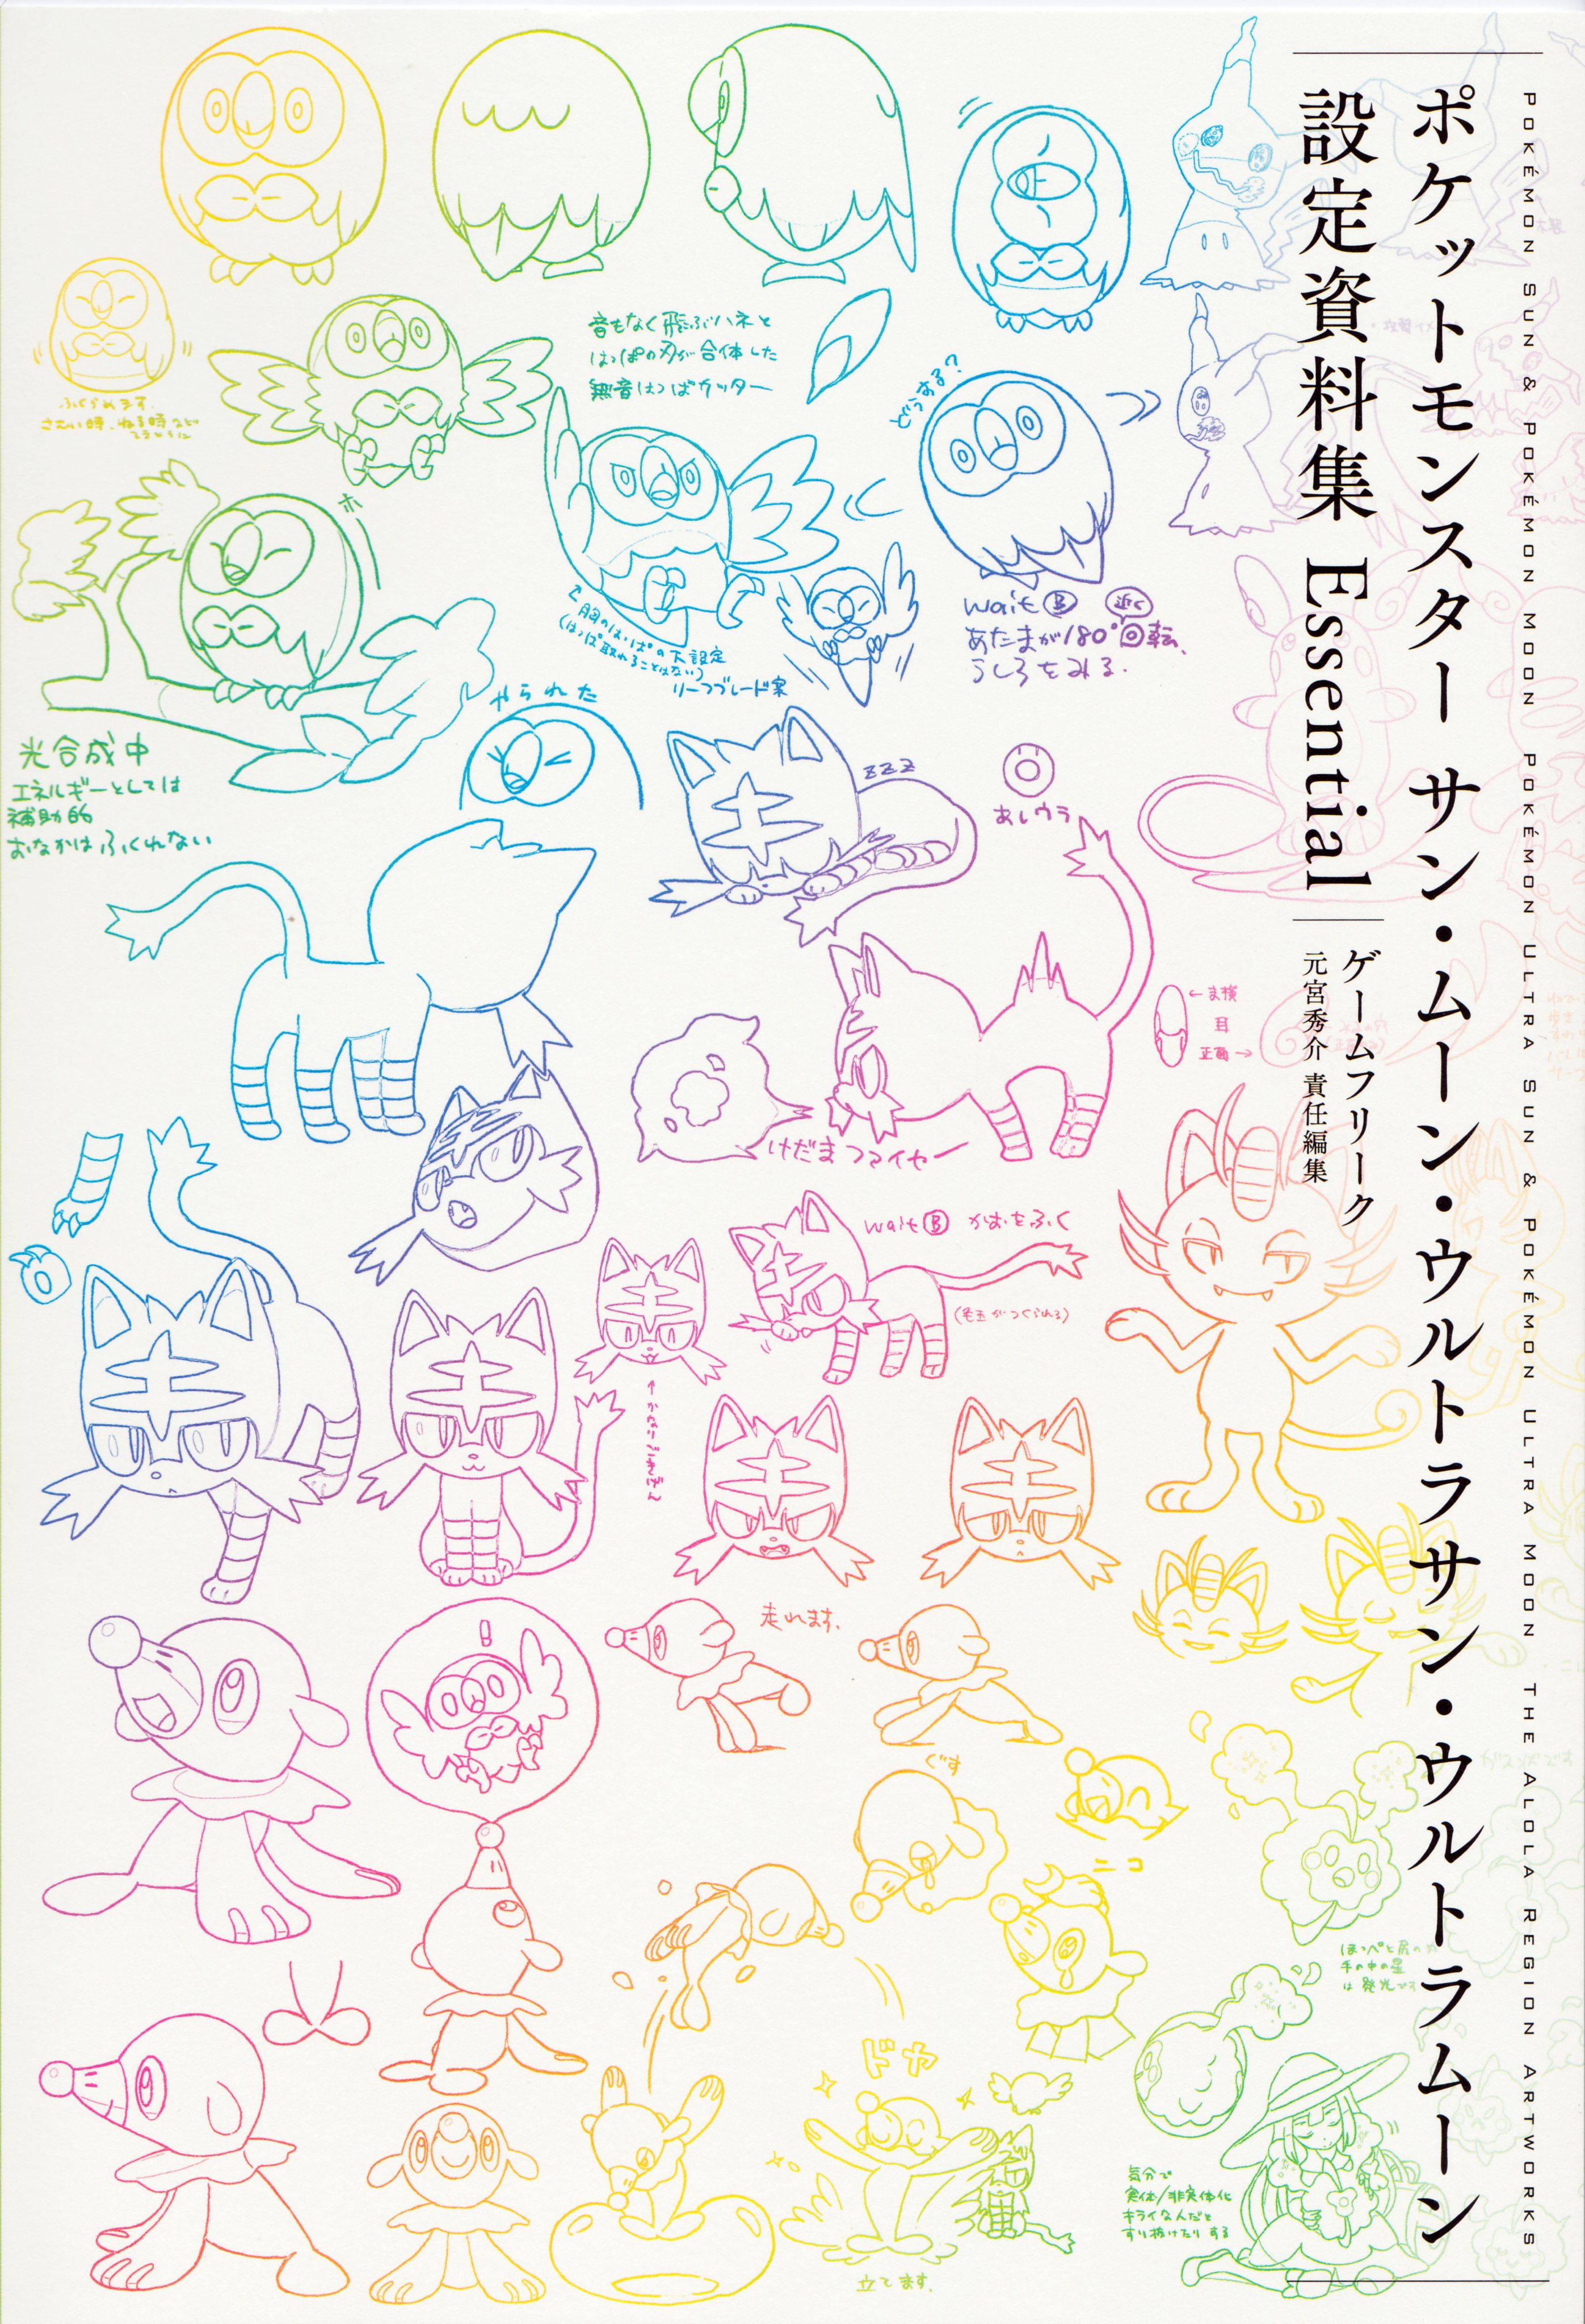 POKÉMON SUN & POKÉMON MOON POKÉMON ULTRA SUN & POKÉMON ULTRA MOON THE ALOLA REGION ARTWORKS
ポケットモンスター サン・ムーン・ウルトラサン・ウルトラムーン
設定資料集 Essential
ゲームフリーク
元宮秀介 責任編集
ふくらみます
さむい時、ねる時など
音もなく飛ぶハネと
はっぱの刃が合体した
無音はっぱカッター
どうする?
ホ
wait B 近く
あたまが180°回転、
うしろをみる.
胸のはっぱの下設定
(はっぱ取れることはない)
リーフブレード案
やられた
光合成中
エネルギーとしては
補助的
おなかはふくれない
zzz
あしウラ
←ま横
耳
正面→
けだまファイヤー
wait B かおをふく
(毛玉がつくられる)
↑かなりごきげん
!
走れます.
ぐす
ニコ
ドヤ
立てます.
ほっぺと尻の
手の中の星
は発光
気分で
実体/非実体化
キライなんだと
すり抜けたりする